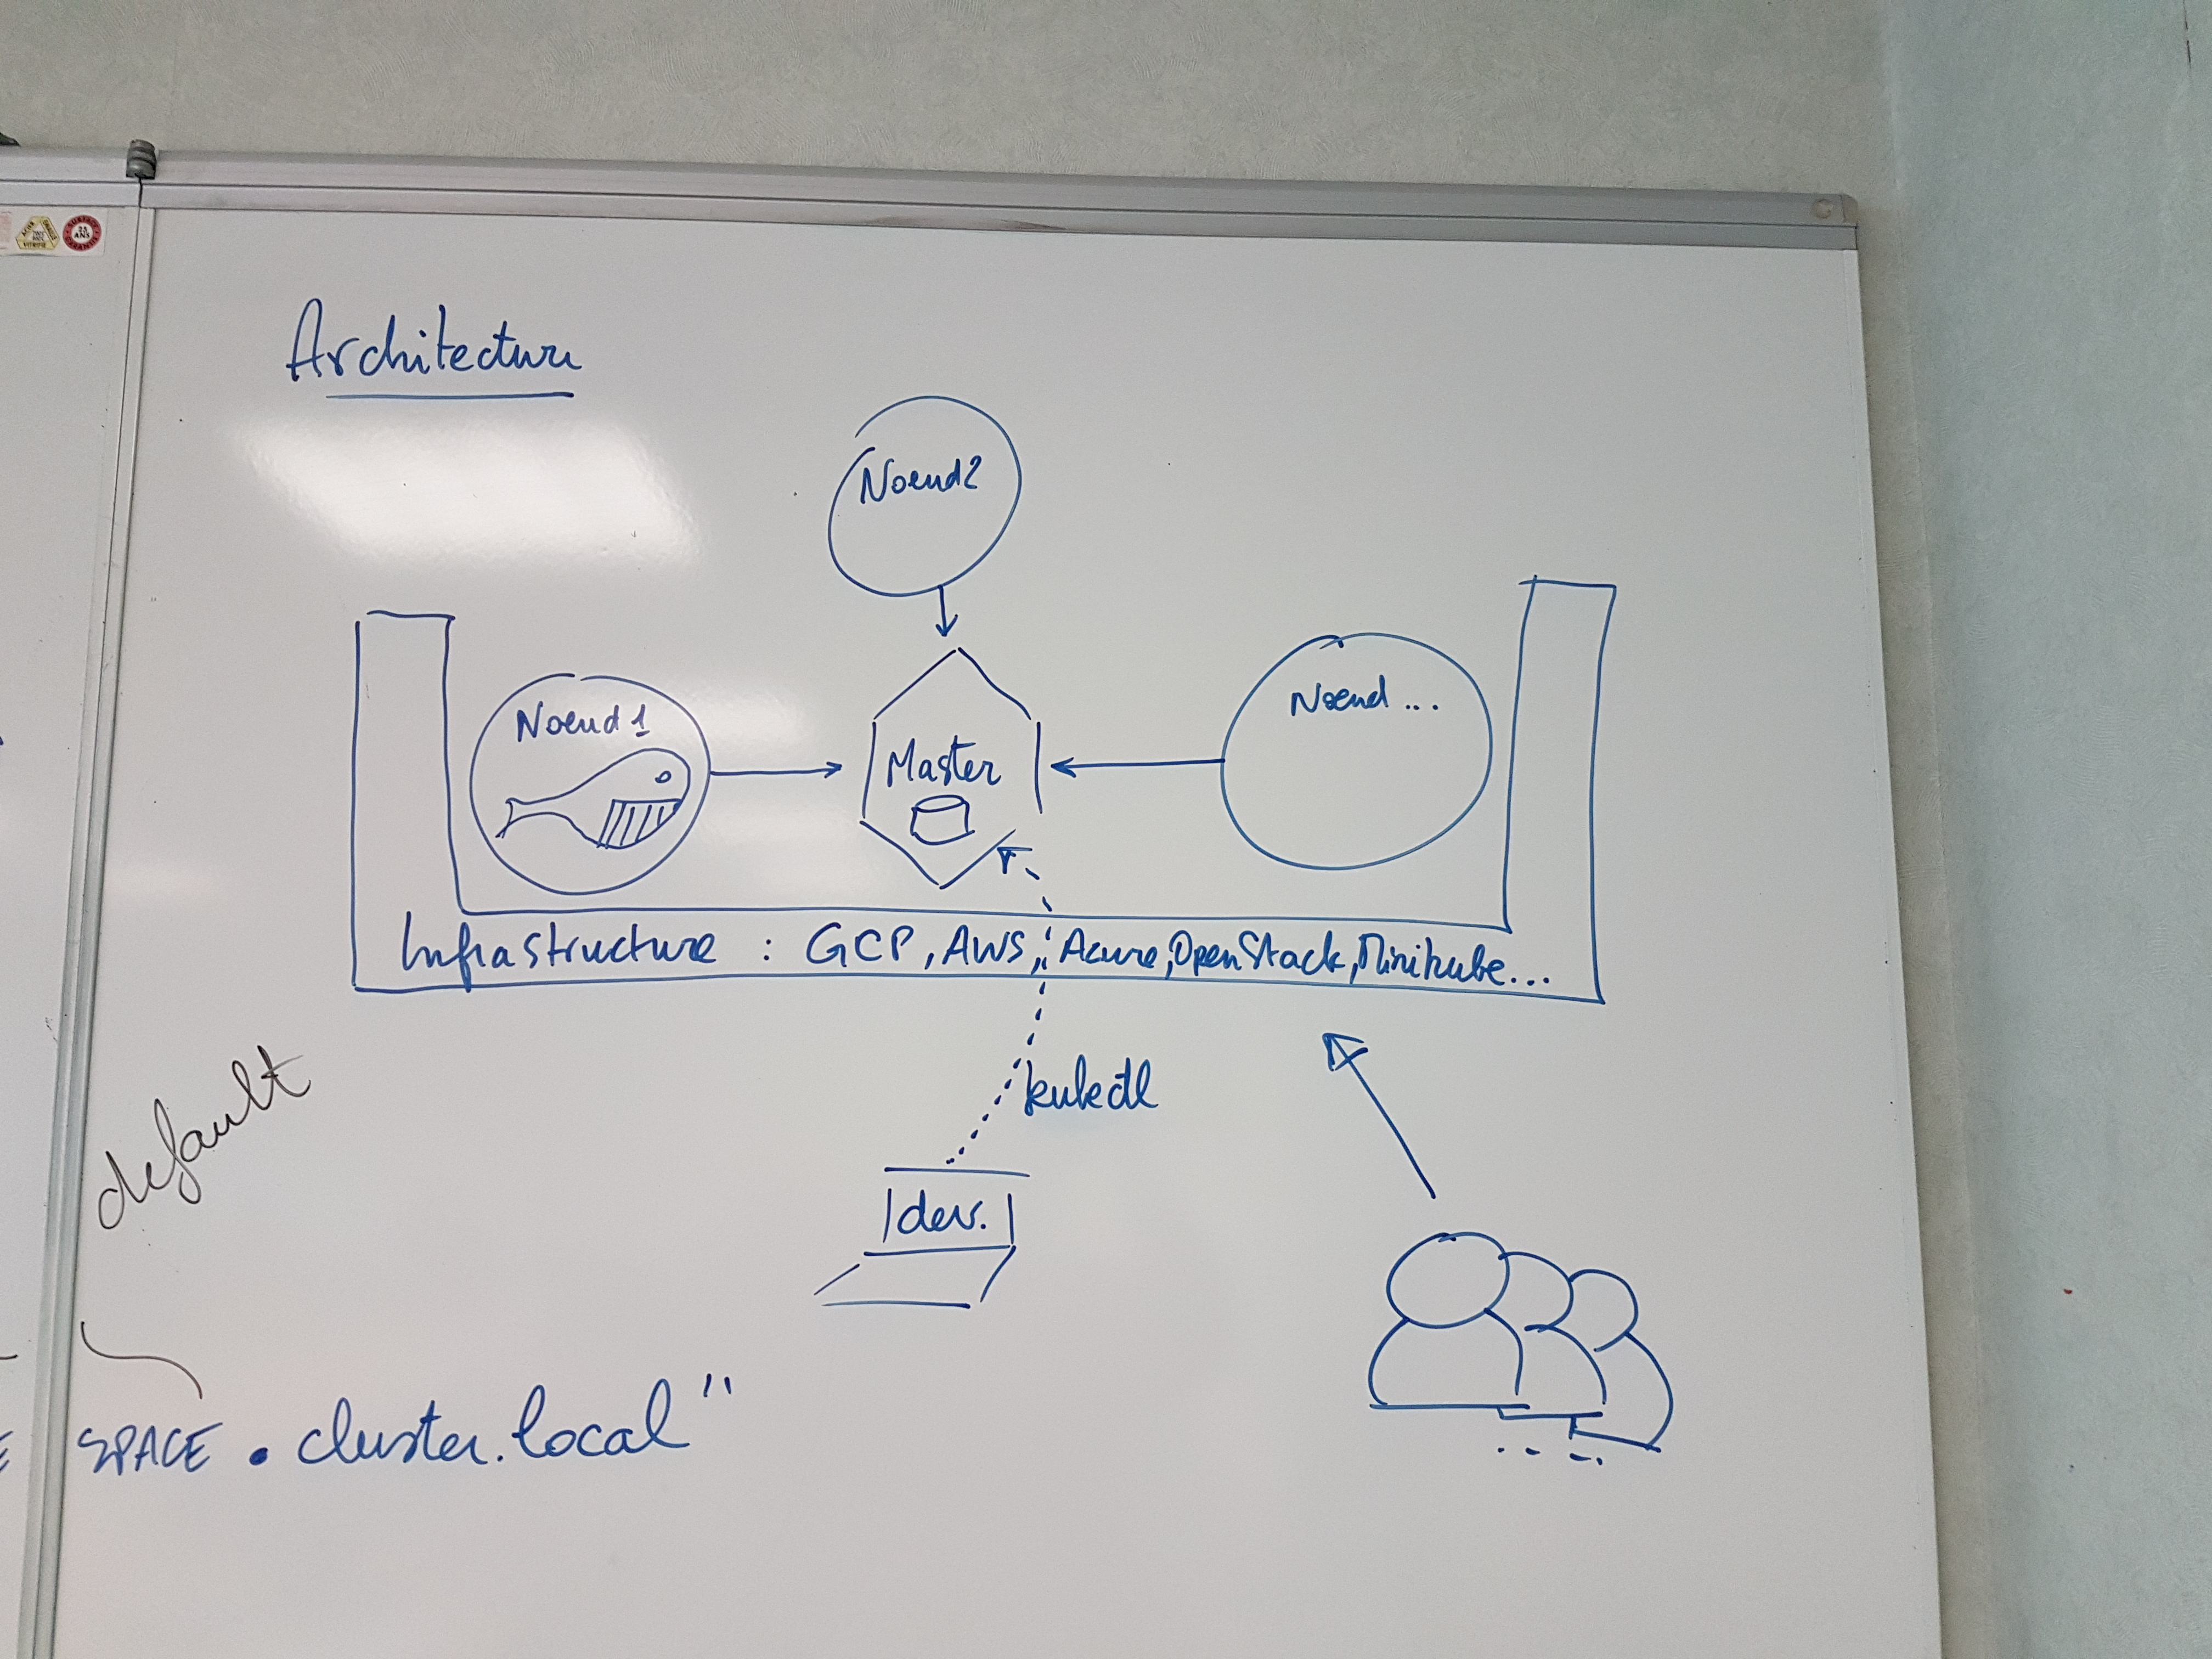 Architecture
Noeud2
Noeud 1
Master
Noeud ...
Infrastructure : GCP, AWS, Azure, OpenStack, Minikube...
kubectl
dev.
default
SPACE . cluster.local"
25
ANS